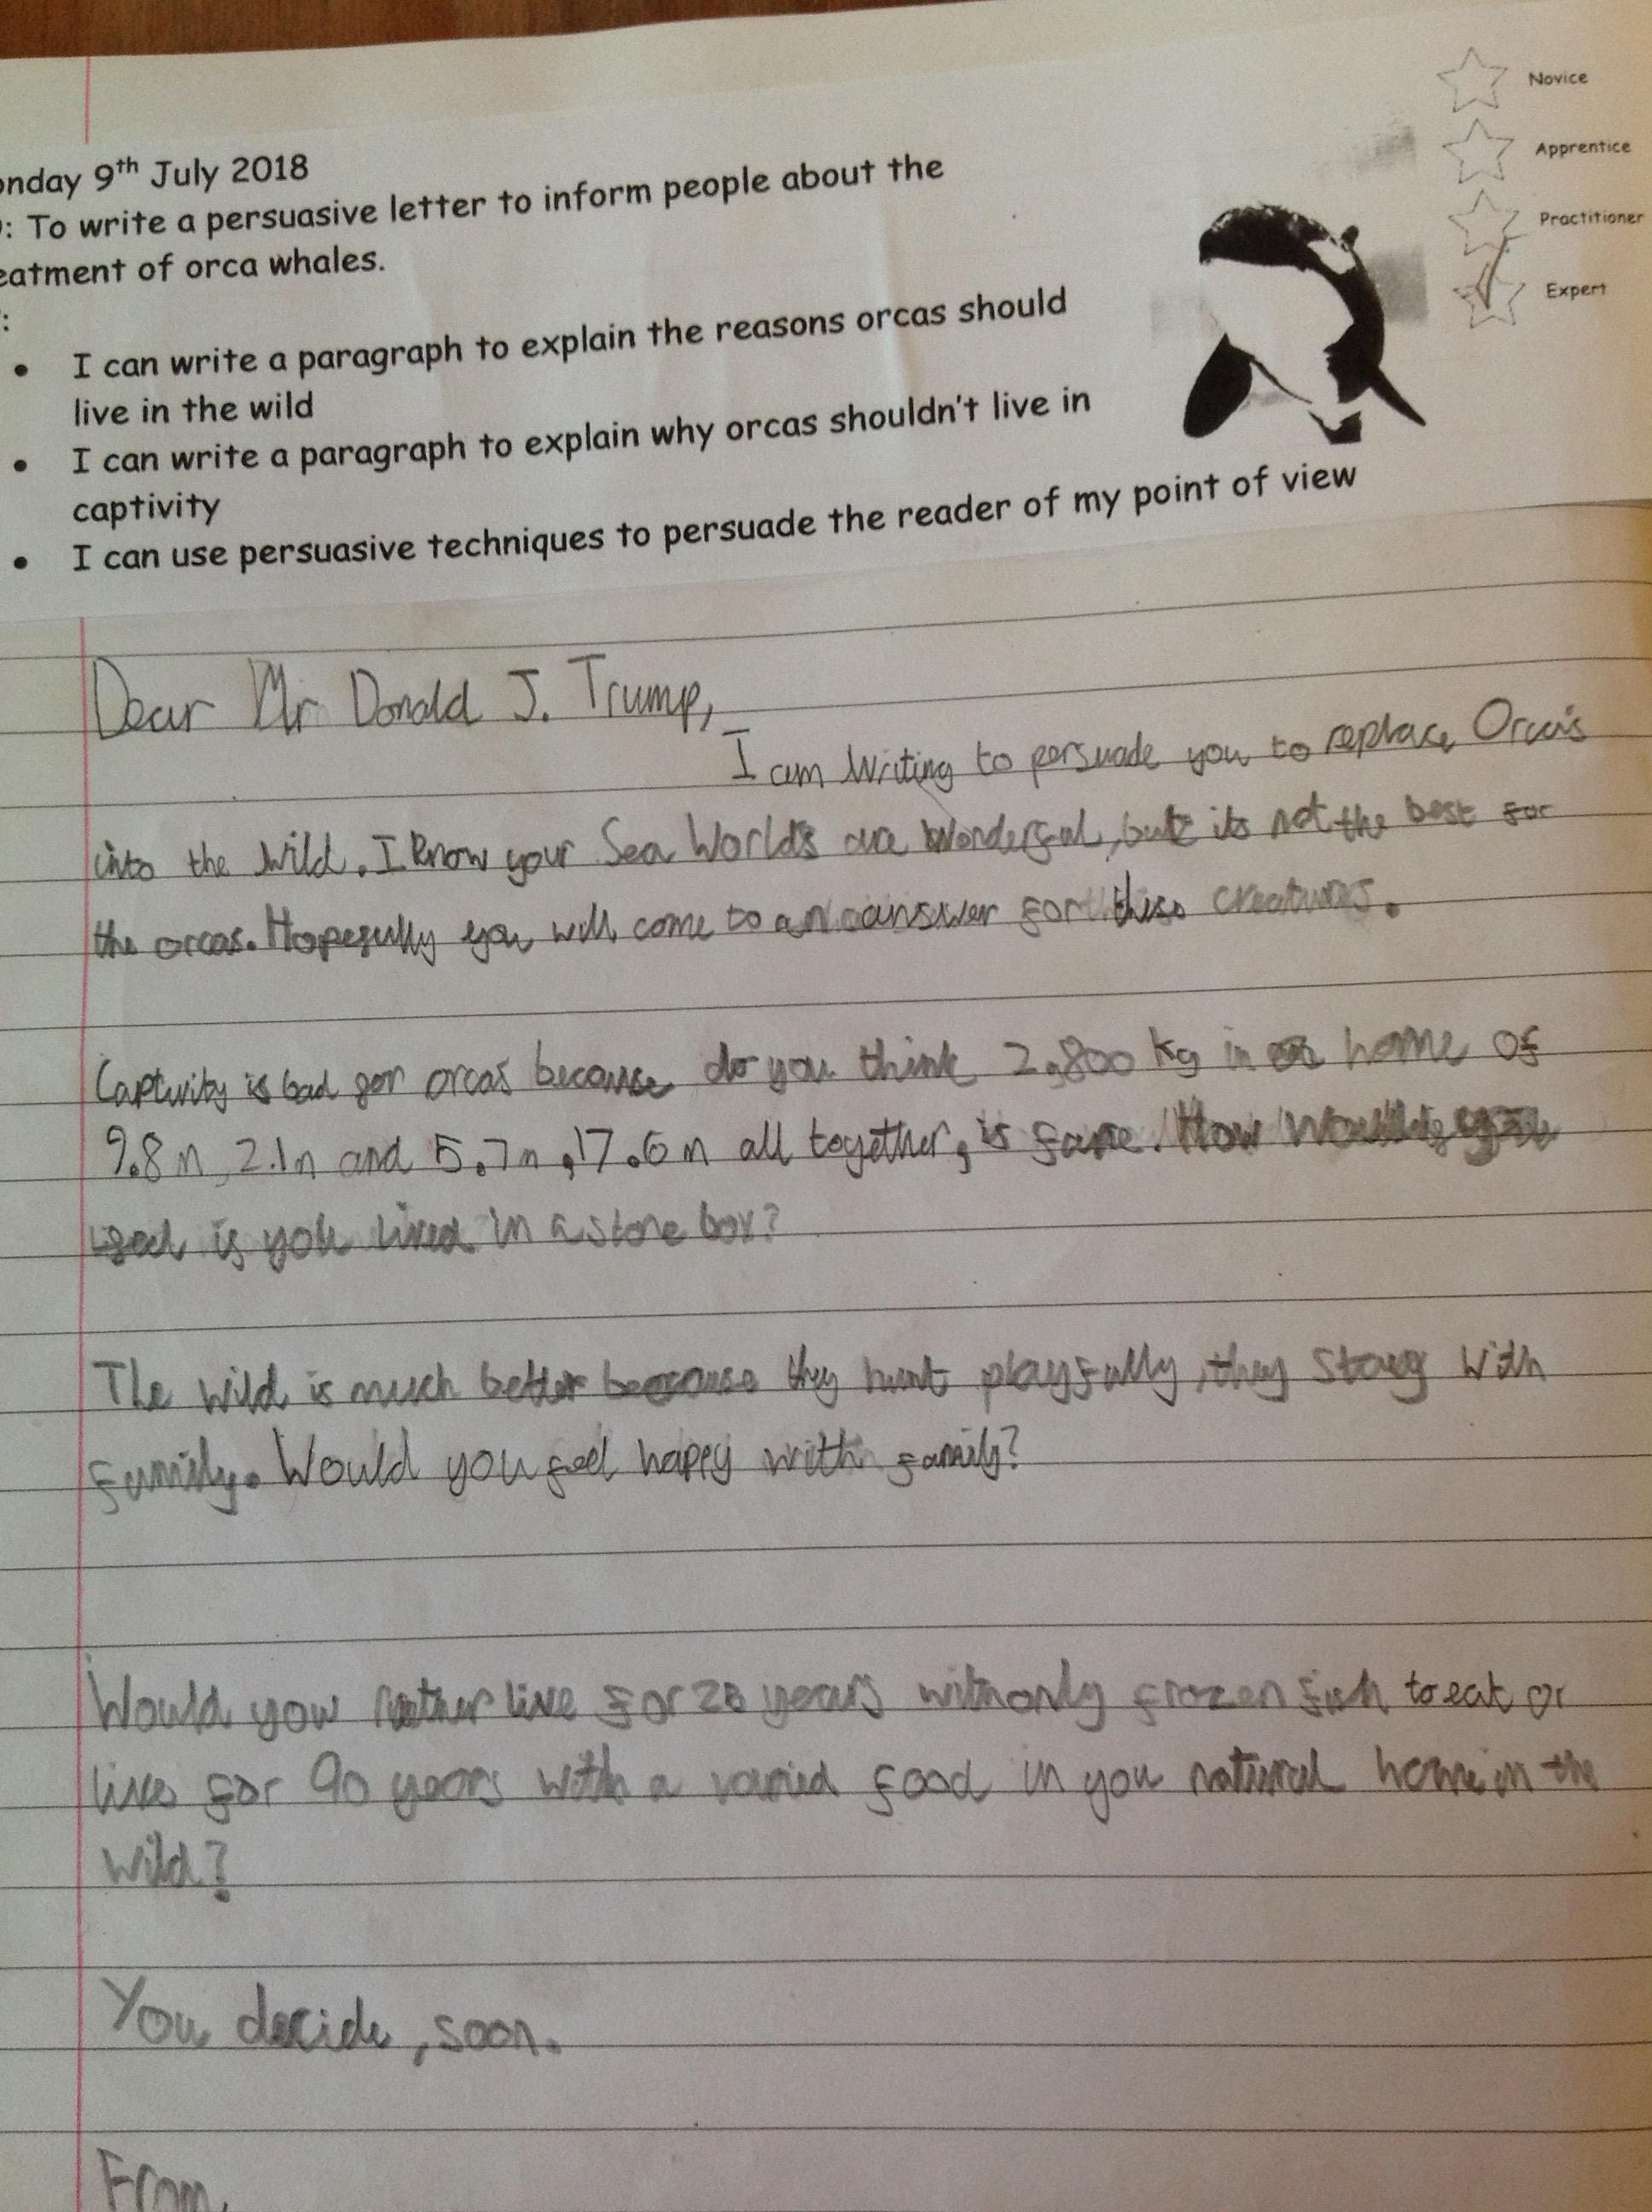 onday 9th July 2018
: To write a persuasive letter to inform people about the
eatment of orca whales.
:
• I can write a paragraph to explain the reasons orcas should
live in the wild
• I can write a paragraph to explain why orcas shouldn't live in
captivity
• I can use persuasive techniques to persuade the reader of my point of view
Novice
Apprentice
Practitioner
Expert
Dear Mr Donald J. Trump,
I am Writing to persuade you to replace Orca's
into the wild. I know your Sea World's are Wonderful, but its not the best for
the orcas. Hopefully you will come to an answer for these creatures.
Captivity is bad for orcas because do you think 2,800 kg in a home of
9.8m, 2.1m and 5.7m, 17.6m all together, is fare. How would you
feel if you lived in a stone box?
The wild is much better because they hunt playfully, they stay with
family. Would you feel happy with family?
Would you rather live for 28 years with only frozen fish to eat or
live for 90 years with a varied food in you natural home in the
wild?
You decide, soon.
From,